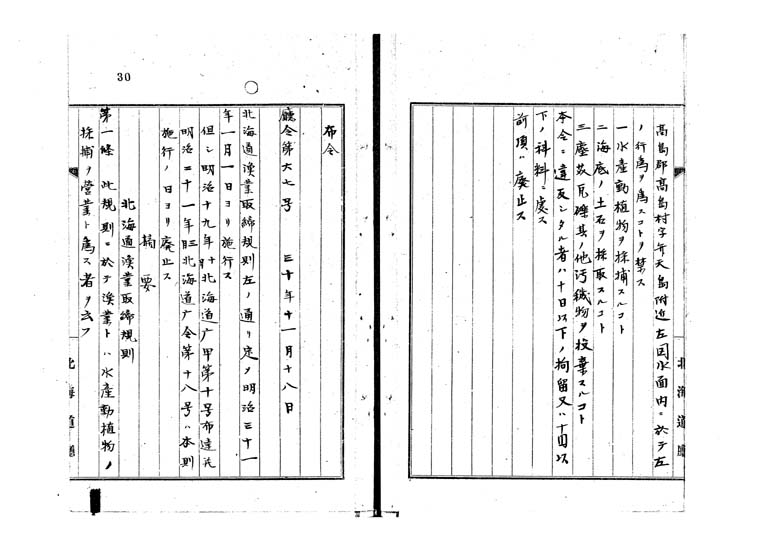 高島郡高島村字弁天島附近左図水面内ニ於テ左
ノ行為ヲ為スコトヲ禁ス
一水産動植物ヲ採捕スルコト
二海底ノ土石ヲ採取スルコト
三塵芥瓦礫其ノ他汚穢物ヲ投棄スルコト
本令ニ違反シタル者ハ十日以下ノ拘留又ハ十円以
下ノ科料ニ処ス
前項ハ廃止ス
北海道庁
30
布令
廳令第六七号 三十年十一月十八日
北海道漁業取締規則左ノ通リ定メ明治三十一
年一月一日ヨリ施行ス
但シ明治十九年十月北海道庁甲第十号布達並
明治二十一年三月北海道庁令第十八号ハ本則
施行ノ日ヨリ廃止ス
摘要
北海道漁業取締規則
第一條 此規則ニ於テ漁業トハ水産動植物ノ
採捕ヲ営業ト為ス者ヲ云フ
北海道廳